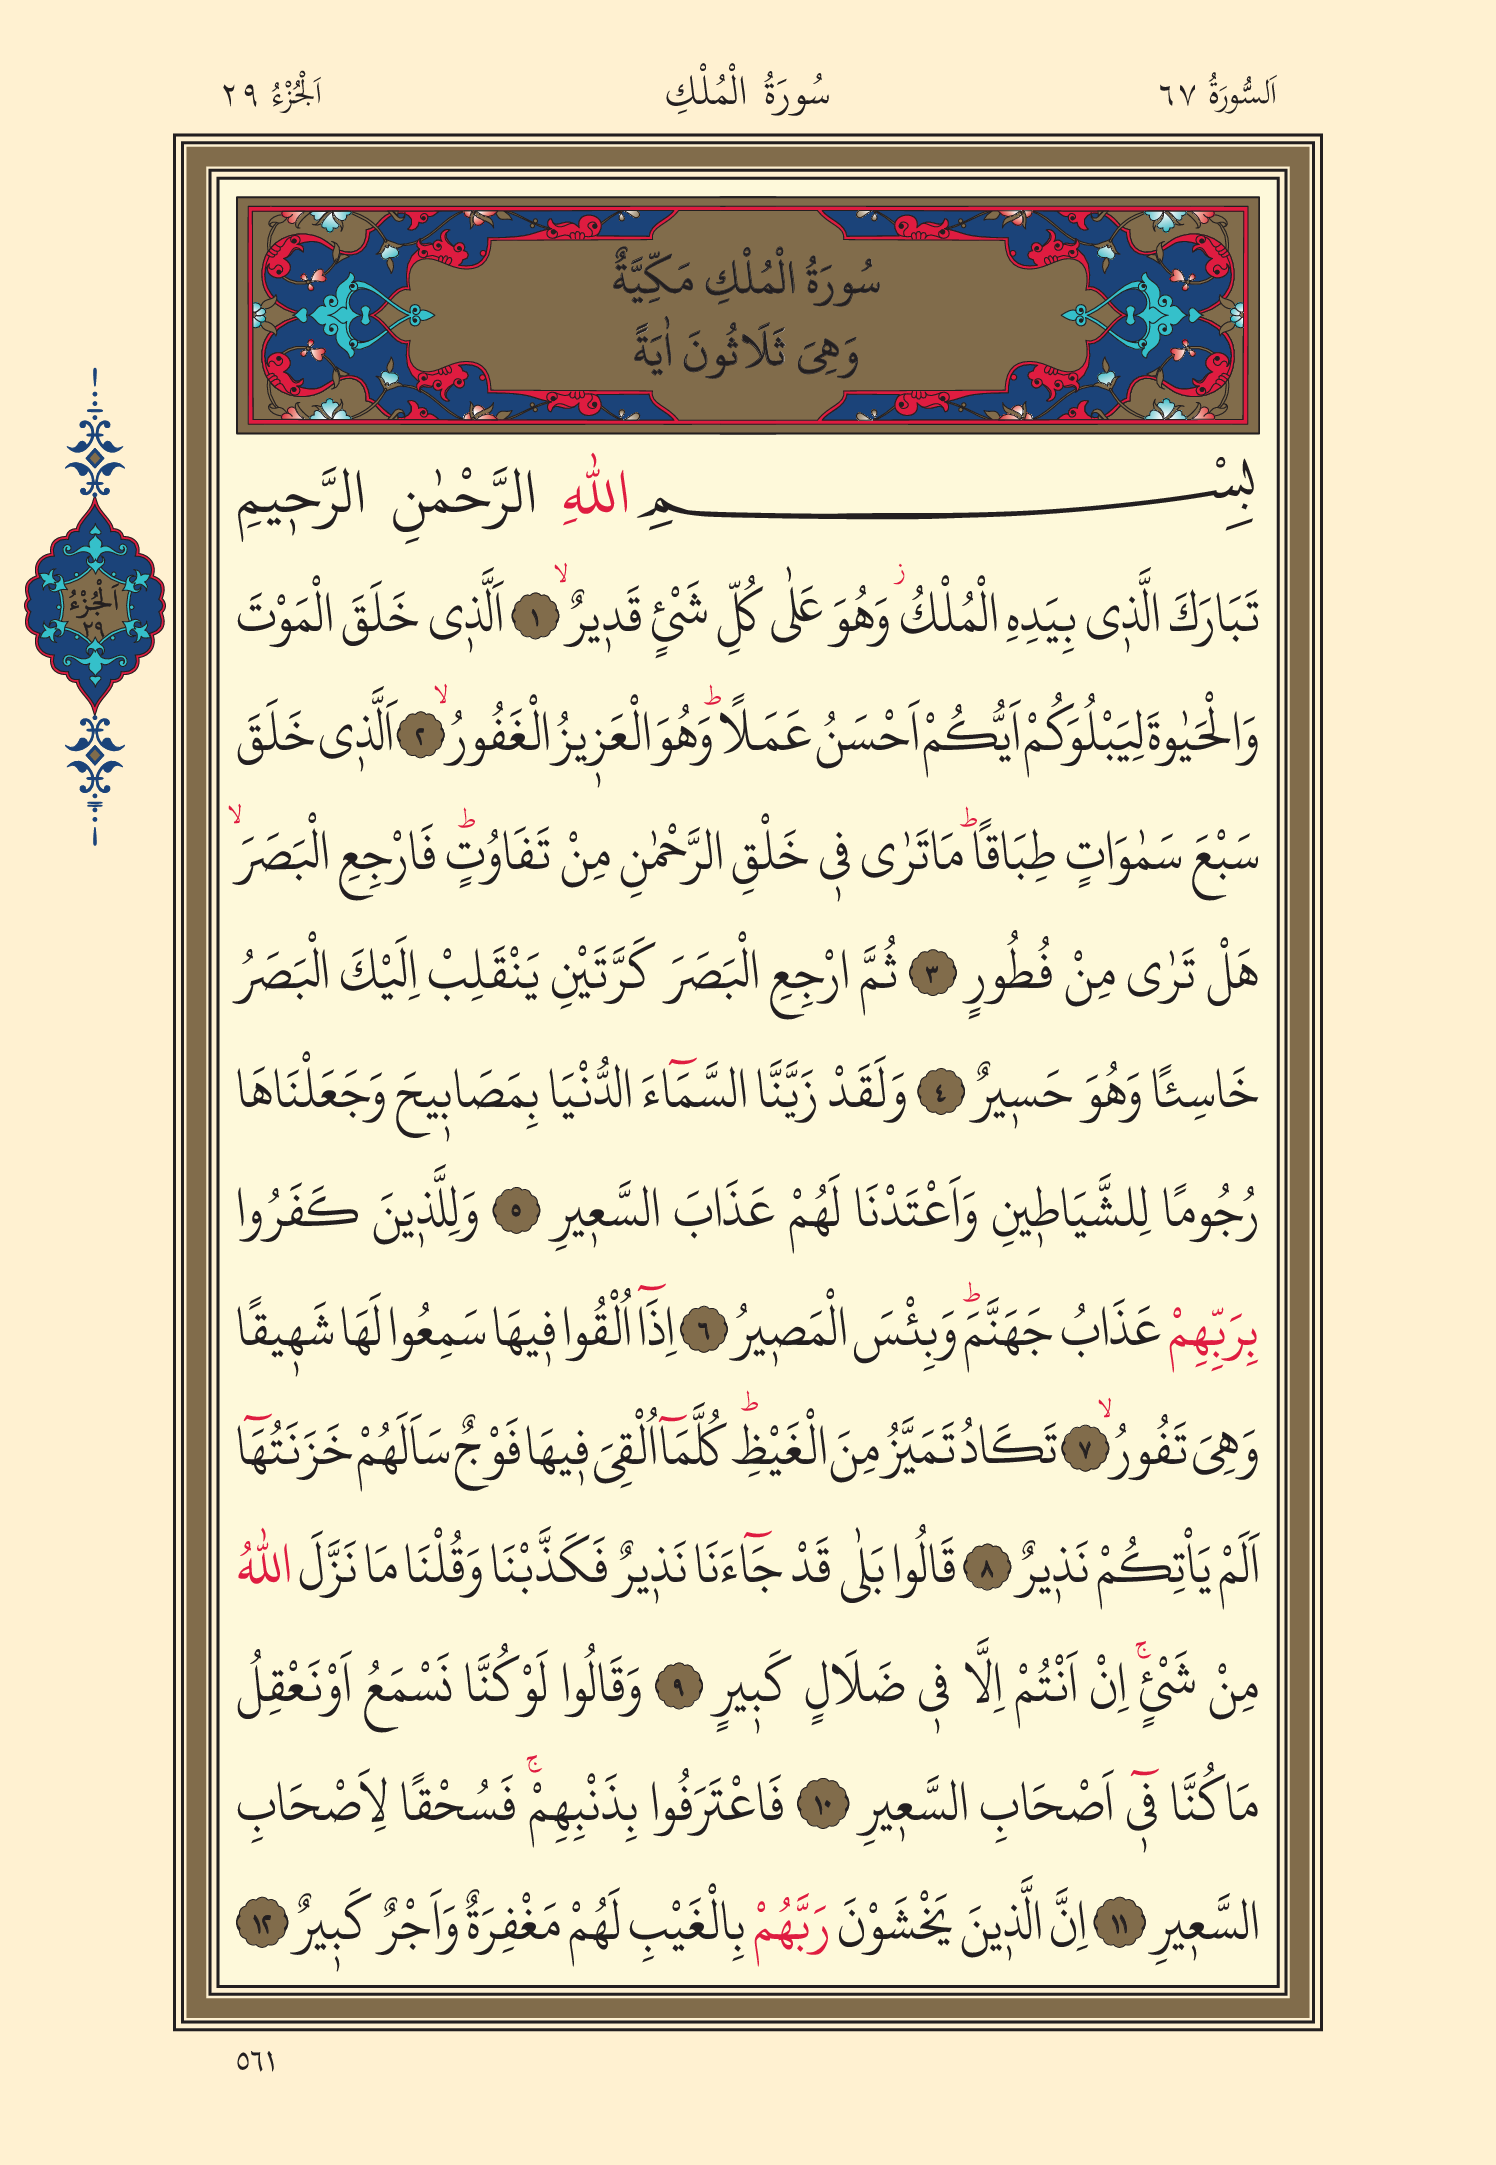 اَلسُّورَةُ ٦٧
سُورَةُ الْمُلْكِ
اَلْجُزْءُ ٢٩
سُورَةُ الْمُلْكِ مَكِّيَّةٌ
وَهِيَ ثَلَاثُونَ اٰيَةً
اَلْجُزْءُ
٢٩
بِسْمِ اللّٰهِ الرَّحْمٰنِ الرَّح۪يمِ
تَبَارَكَ الَّذ۪ى بِيَدِهِ الْمُلْكُۘ وَهُوَ عَلٰى كُلِّ شَىْءٍ قَد۪يرٌۙ ﴿١﴾ اَلَّذ۪ى خَلَقَ الْمَوْتَ
وَالْحَيٰوةَ لِيَبْلُوَكُمْ اَيُّكُمْ اَحْسَنُ عَمَلًاۜ وَهُوَ الْعَز۪يزُ الْغَفُورُۙ ﴿٢﴾ اَلَّذ۪ى خَلَقَ
سَبْعَ سَمٰوَاتٍ طِبَاقًاۜ مَاتَرٰى ف۪ى خَلْقِ الرَّحْمٰنِ مِنْ تَفَاوُتٍۜ فَارْجِعِ الْبَصَرَۙ
هَلْ تَرٰى مِنْ فُطُورٍ ﴿٣﴾ ثُمَّ ارْجِعِ الْبَصَرَ كَرَّتَيْنِ يَنْقَلِبْ اِلَيْكَ الْبَصَرُ
خَاسِئًا وَهُوَ حَس۪يرٌ ﴿٤﴾ وَلَقَدْ زَيَّنَّا السَّمَٓاءَ الدُّنْيَا بِمَصَاب۪يحَ وَجَعَلْنَاهَا
رُجُومًا لِلشَّيَاط۪ينِ وَاَعْتَدْنَا لَهُمْ عَذَابَ السَّع۪يرِ ﴿٥﴾ وَلِلَّذ۪ينَ كَفَرُوا
بِرَبِّهِمْ عَذَابُ جَهَنَّمَۜ وَبِئْسَ الْمَص۪يرُ ﴿٦﴾ اِذَٓا اُلْقُوا ف۪يهَا سَمِعُوا لَهَا شَه۪يقًا
وَهِىَ تَفُورُۙ ﴿٧﴾ تَكَادُ تَمَيَّزُ مِنَ الْغَيْظِۜ كُلَّمَٓا اُلْقِىَ ف۪يهَا فَوْجٌ سَاَلَهُمْ خَزَنَتُهَٓا
اَلَمْ يَاْتِكُمْ نَذ۪يرٌ ﴿٨﴾ قَالُوا بَلٰى قَدْ جَٓاءَنَا نَذ۪يرٌ فَكَذَّبْنَا وَقُلْنَا مَا نَزَّلَ اللّٰهُ
مِنْ شَىْءٍۚ اِنْ اَنْتُمْ اِلَّا ف۪ى ضَلَالٍ كَب۪يرٍ ﴿٩﴾ وَقَالُوا لَوْ كُنَّا نَسْمَعُ اَوْ نَعْقِلُ
مَا كُنَّا ف۪ٓى اَصْحَابِ السَّع۪يرِ ﴿١٠﴾ فَاعْتَرَفُوا بِذَنْبِهِمْۚ فَسُحْقًا لِاَصْحَابِ
السَّع۪يرِ ﴿١١﴾ اِنَّ الَّذ۪ينَ يَخْشَوْنَ رَبَّهُمْ بِالْغَيْبِ لَهُمْ مَغْفِرَةٌ وَاَجْرٌ كَب۪يرٌ ﴿١٢﴾
٥٦١